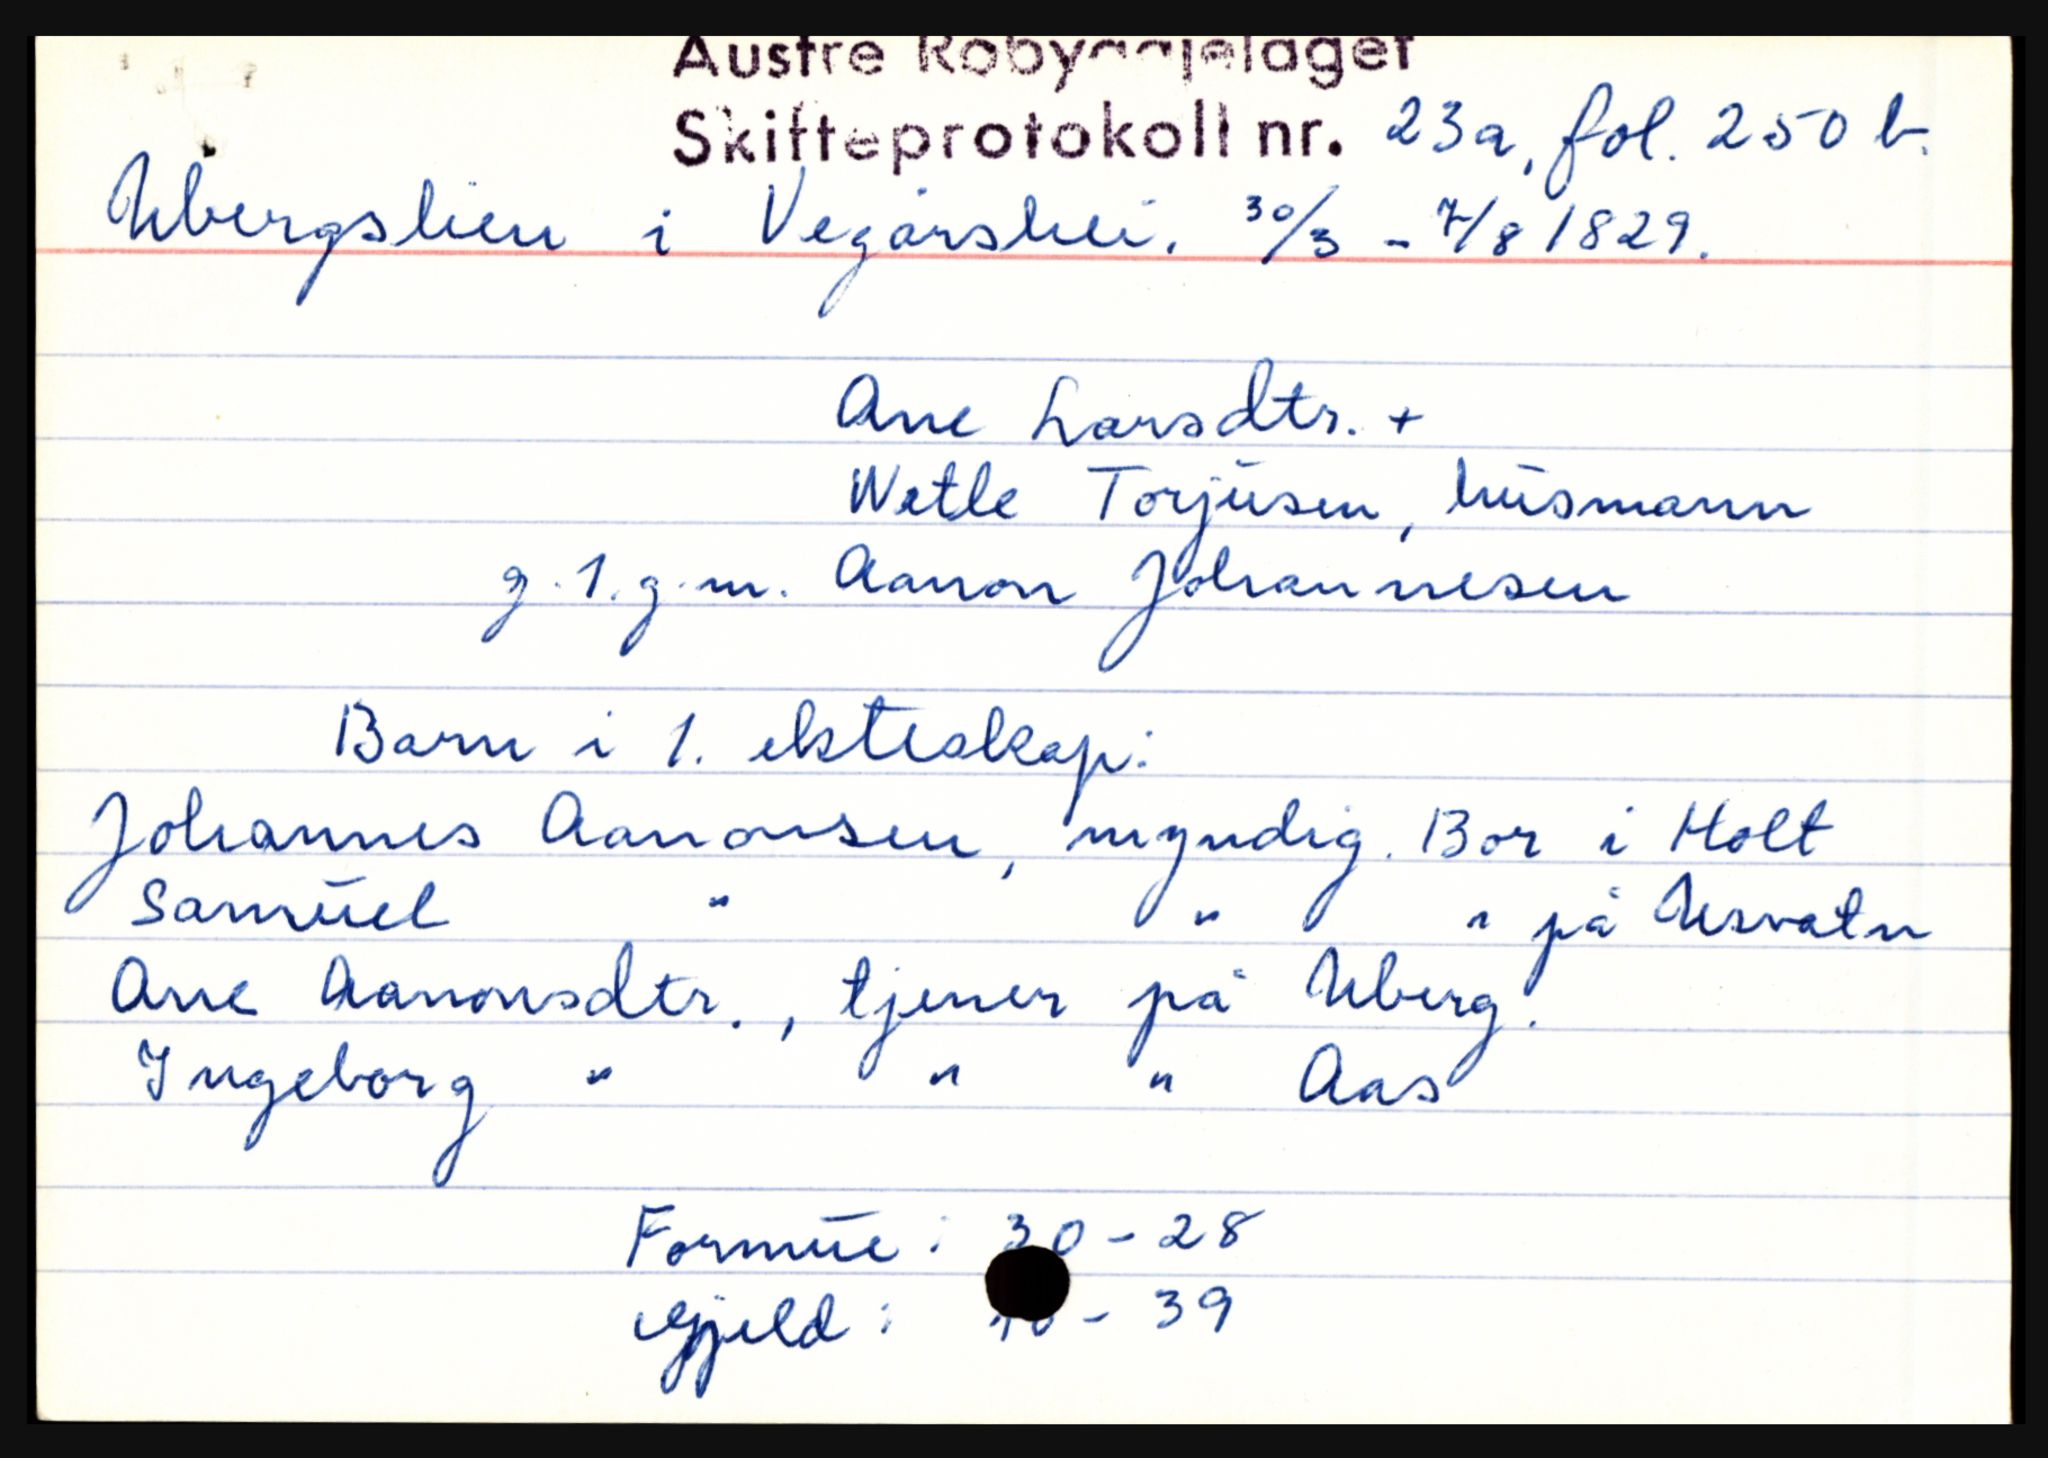 Austre Robyggjelaget
Skifteprotokoll nr. 23a, fol. 250 b.
Ubergslien i Vegårshei. 30/3 - 7/8 1829.
Ane Larsdtr. +
Wetle Torjusen, husmann
g. 1. g. m. Aanon Johannesen
Barn i 1. ekteskap:
Johannes Aanonsen, myndig. Bor i Holt
Samuel " " " på Usvatn
Ane Aanonsdtr., tjener på Uberg.
Ingeborg " " " Aas
Formue: 30 - 28
Gjeld: - 39